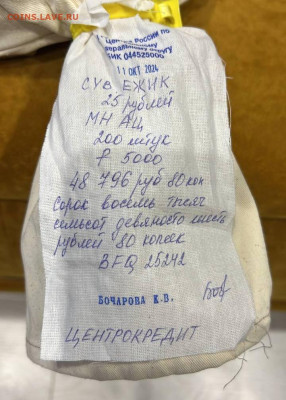 COINS.LAVE.RU
Центр России по
федеральному округу
БИК 044525000
11 ОКТ 2024
СУВ. ЕЖИК
25 рублей
МН АЦ
200 штук
₽ 5000
48 796 руб 80 коп
Сорок восемь тысяч
семьсот девяносто шесть
рублей 80 копеек
BFQ 25242
БОЧАРОВА К.В.
ЦЕНТРОКРЕДИТ